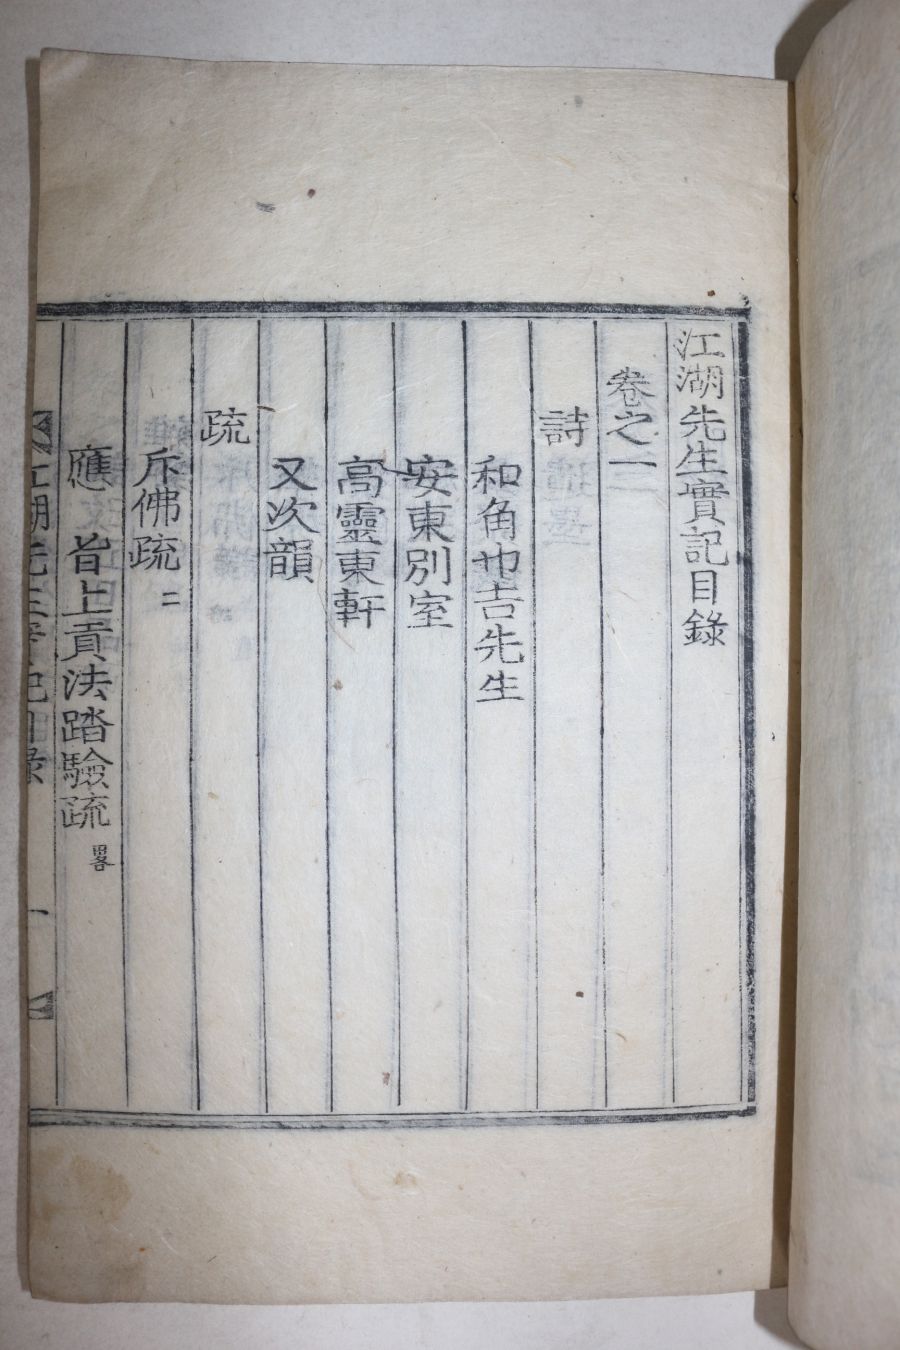 江湖先生實記目錄
卷之一
詩
和角也吉先生
安東別室
高靈東軒
又次韻
疏
斥佛疏 二
應 旨上貢法踏驗疏 畧
江湖先生實記目錄 一